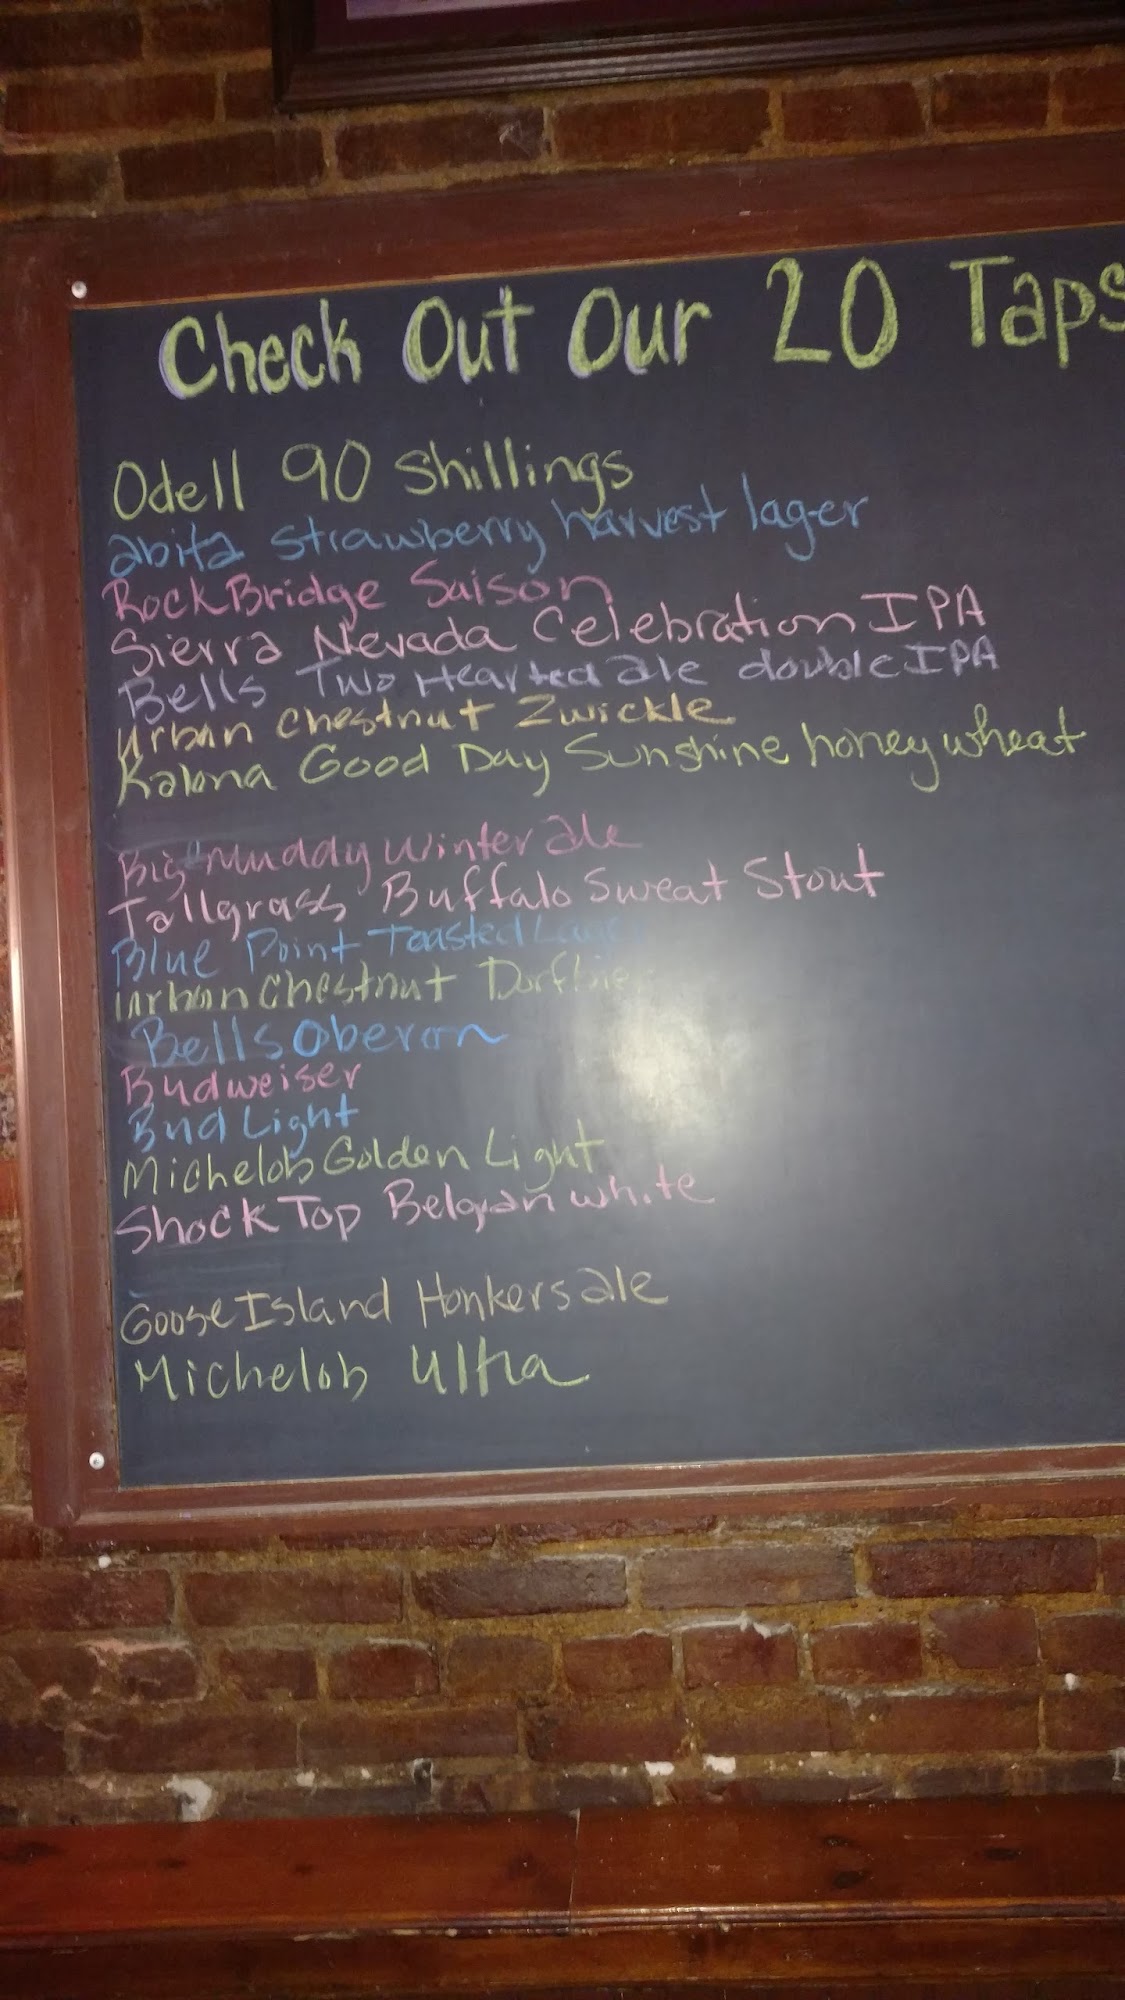 Check Out Our 20 Taps
Odell 90 Shillings
abita strawberry harvest lager
Rock Bridge Saison
Sierra Nevada Celebration IPA
Bells Two Hearted ale double IPA
Urban Chestnut Zwickle
Kalona Good Day Sunshine honey wheat
Big Muddy Winter ale
Tallgrass Buffalo Sweat Stout
Blue Point Toasted Lager
Urban Chestnut Dorfbier
Bells Oberon
Budweiser
Bud Light
Michelob Golden Light
Shock Top Belgian white
Goose Island Honkers ale
Michelob Ultra